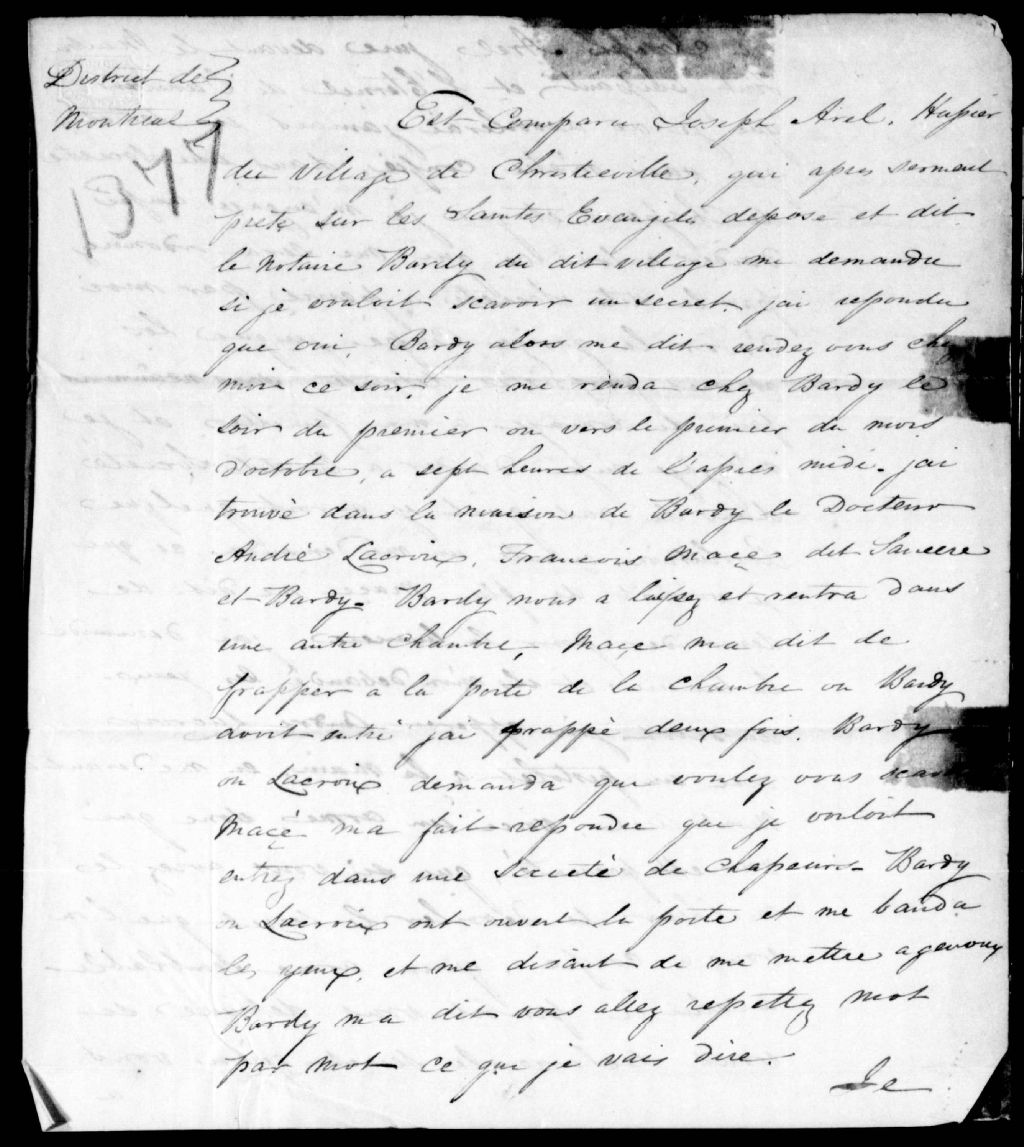 District de
Montreal
1377
Est Comparu Joseph Arel, Hussier
du Village de Christieville, qui apres serment
prete sur les Saintes Evangiles depose et dit
le Notaire Bardy du dit village me demandu
si je vouloit scavoir un secret, jai repondu
que oui, Bardy alors me dit rendez vous chez
moi ce soir, je me renda chez Bardy le
soir du premier ou vers le premier du mois
d'octobre, a sept heures de l'apres midi. jai
trouvé dans la maison de Bardy le Docteur
André Lacroix, Francois Maçe dit Sancere
et Bardy. Bardy nous a laissez et rentra dans
une autre chambre, Maçe ma dit de
frapper a la porte de la chambre ou Bardy
avoit entré jai frappé deux fois. Bardy
ou Lacroix demanda que voulez vous
Maçé ma fait repondre que je vouloit
entrez dans une Societé de Chasseurs. Bardy
ou Lacroix ont ouvert la porte et me banda
les yeux, et me disant de me mettre a genoux
Bardy ma dit vous allez repettez mot
par mot ce que je vais dire.
Je